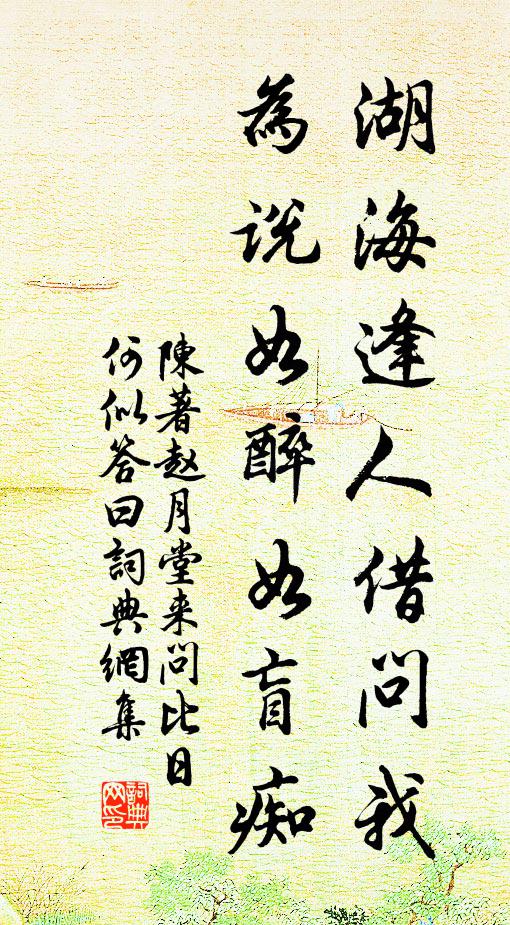 湖海逢人借问我
為说如醉如盲痴
陳著赵月堂来问比日
何似答曰詞典網集
詞典
网印